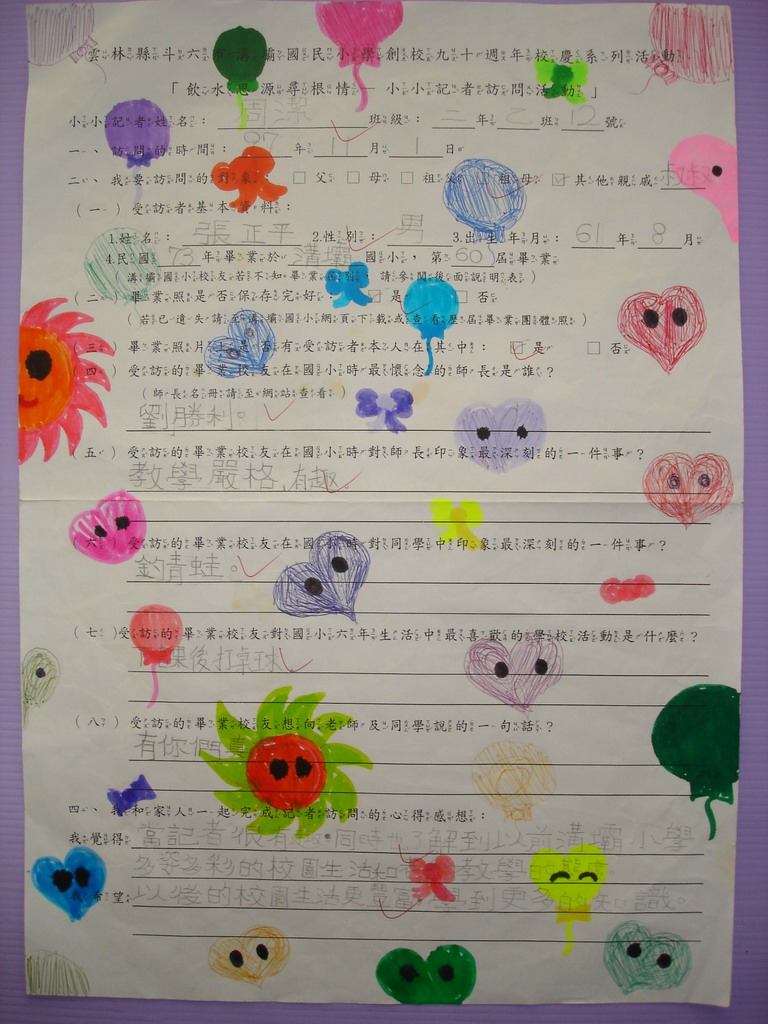 雲林縣斗六市溝壩國民小學創校九十週年校慶系列活動
「飲水思源尋根情—小小記者訪問活動」
小小記者姓名：周潔 班級：二年乙班12號
一、訪問的時間：97年11月1日
二、我要訪問的對象：□父□母□祖父□祖母☑其他親戚叔叔
（一）受訪者基本資料：
1.姓名：張正平 2.性別：男 3.出生年月：61年8月
4.民國73年畢業於溝壩國小，第60屆畢業。
（溝壩國小校友若不知畢業屆別，請參閱後面說明表）
（二）畢業照是否保存完好：☑是□否
（若已遺失請至溝壩國小網頁下載或查看歷屆畢業團體照）
（三）畢業照片上是否有受訪者本人在其中：☑是□否
（四）受訪的畢業校友在國小時最懷念的師長是誰？
（師長名冊請至網站查看）
劉勝利。
（五）受訪的畢業校友在國小時對師長印象最深刻的一件事？
教學嚴格,有趣。
（六）受訪的畢業校友在國小時對同學中印象最深刻的一件事？
釣青蛙。
（七）受訪的畢業校友對國小六年生活中最喜歡的學校活動是什麼？
下課後打桌球
（八）受訪的畢業校友想向老師及同學說的一句話？
有你們真
四、我和家人一起完成記者訪問的心得感想：
我覺得當記者很有 同時也了解到以前溝壩小學
多采多彩的校園生活和老 教學的
我希望以後的校園生活更豐富 學到更多的知識。